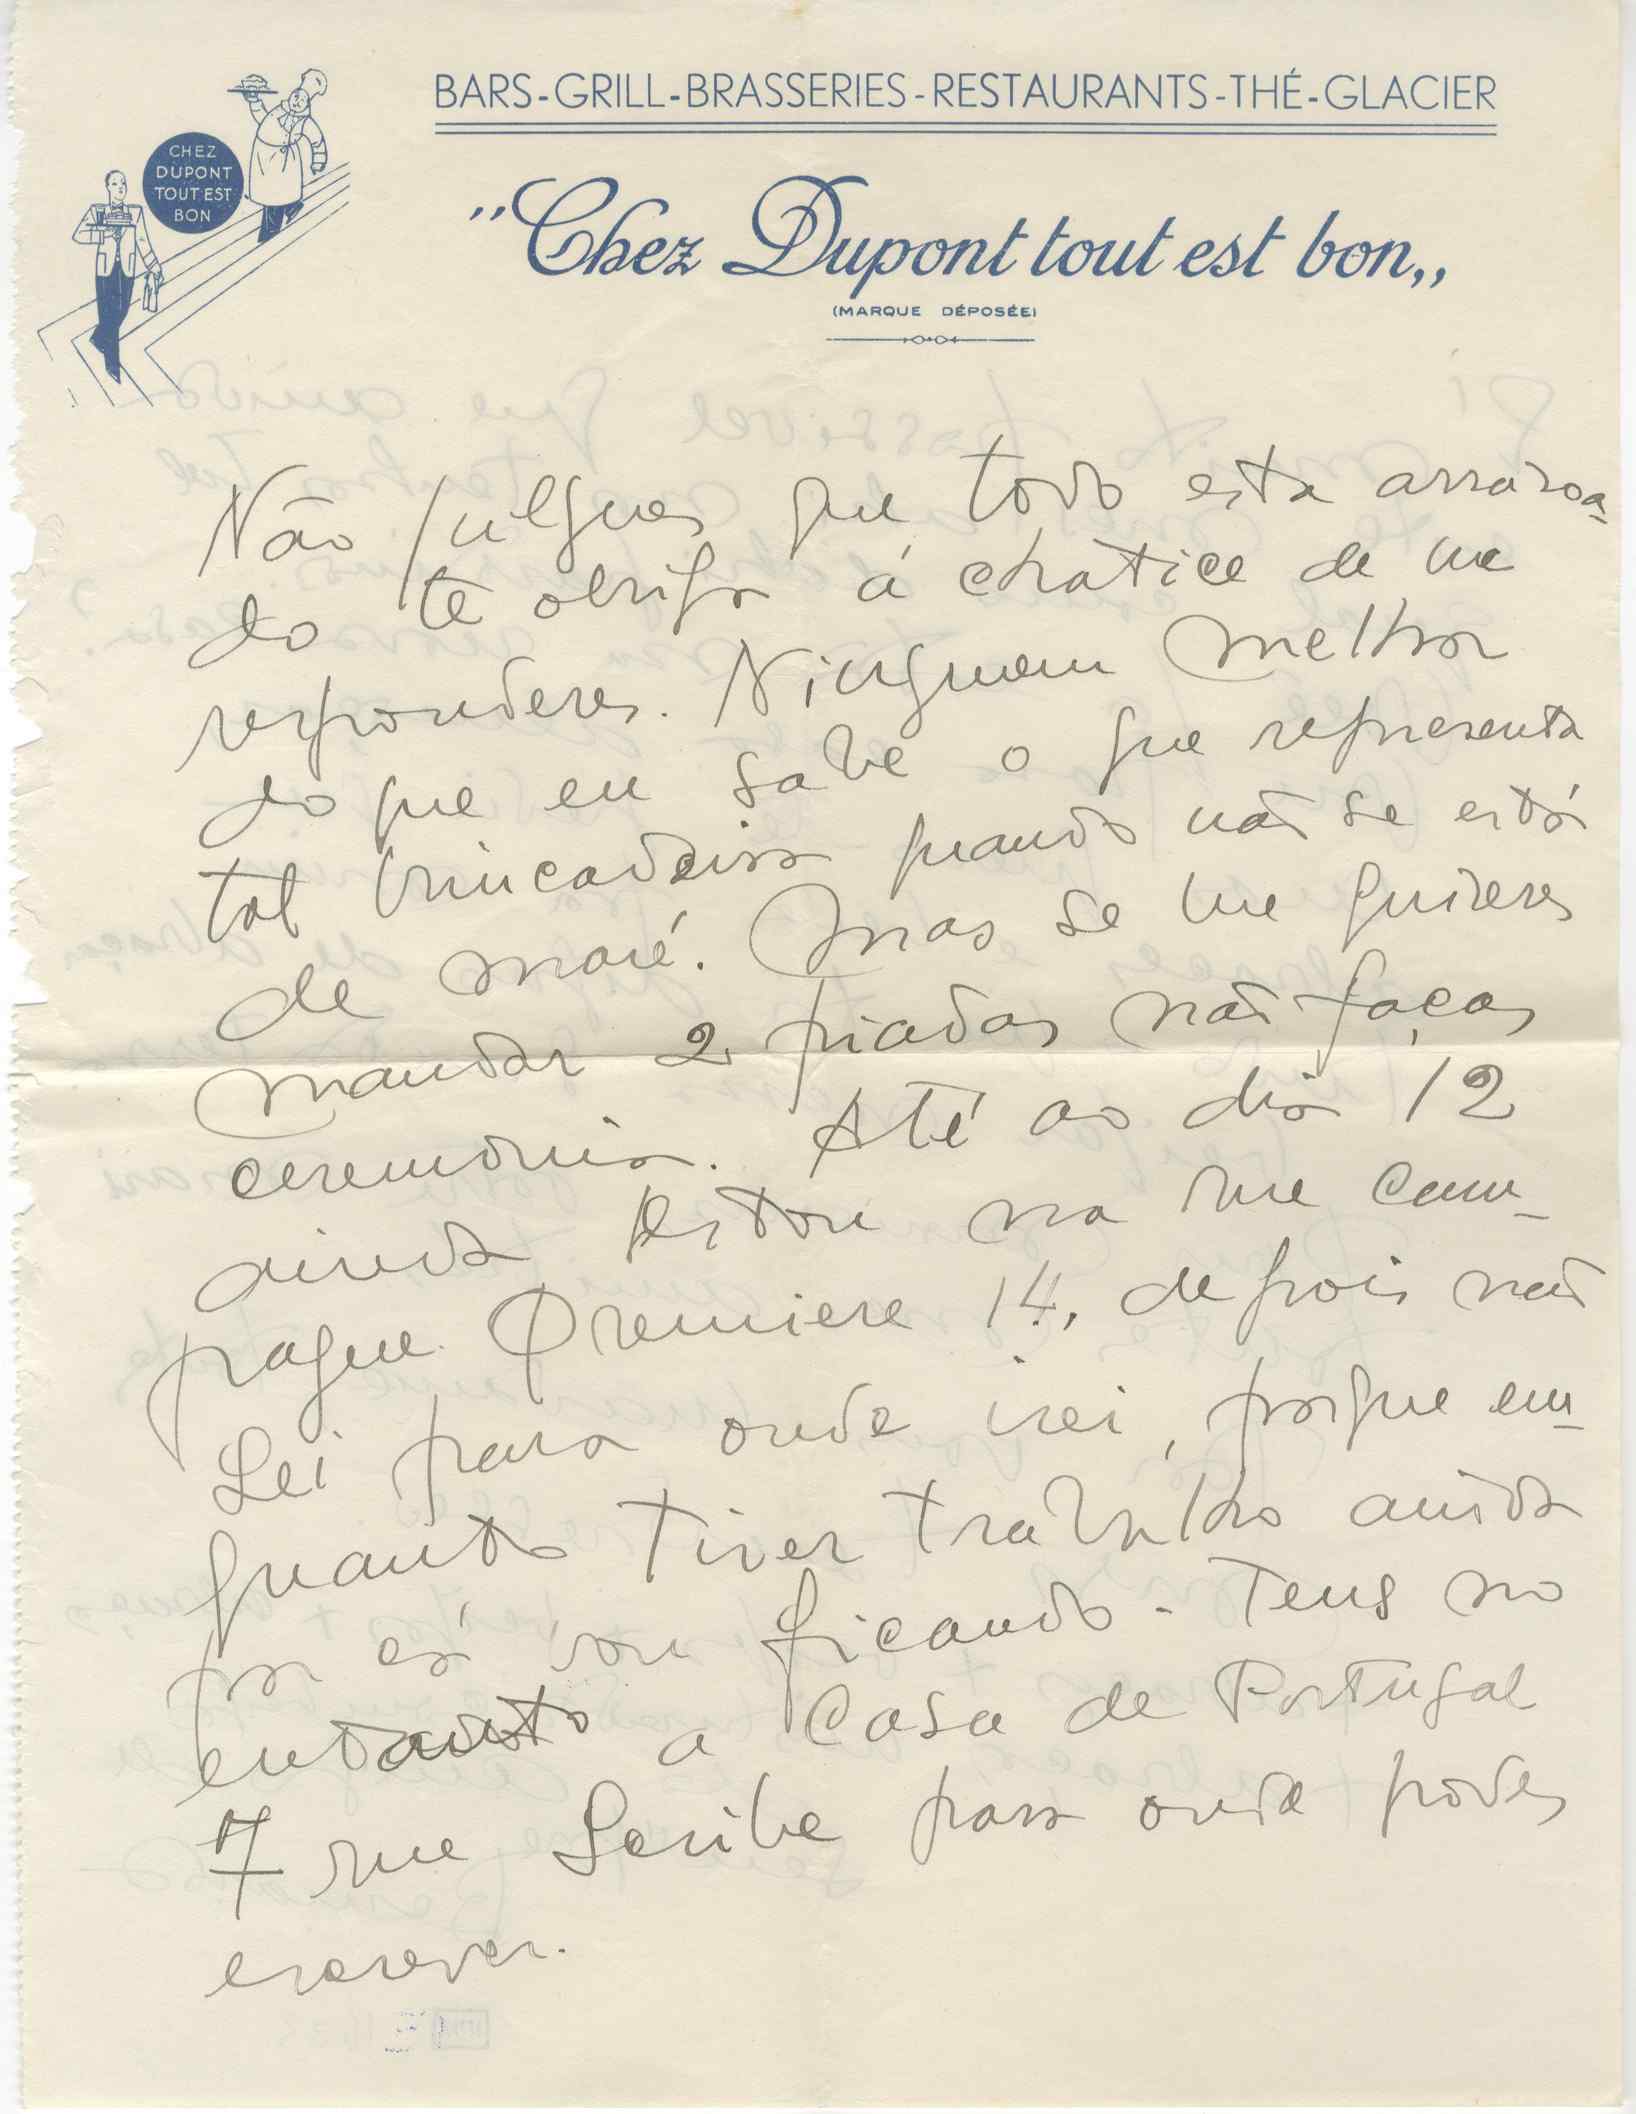 BARS-GRILL-BRASSERIES-RESTAURANTS-THÉ-GLACIER
CHEZ
DUPONT
TOUT EST
BON
"Chez Dupont tout est bon„
(MARQUE DÉPOSÉE)
Não julgues que todo este arrazoa-
do te obriga á chatice de me
responderes. Ninguem melhor
do que eu sabe o que representa
tal brincadeira quando não se está
de maré. Mas se me quiseres
mandar 2 piadas não faças
ceremonia. Até ao dia 12
ainda estou na rue Cam-
pagne Premiere 14, depois não
sei para onde irei, porque em-
quanto tiver trabalho ainda
por cá vou ficando. Tens no
entanto a Casa de Portugal
7 rue Scribe para onde podes
escrever.